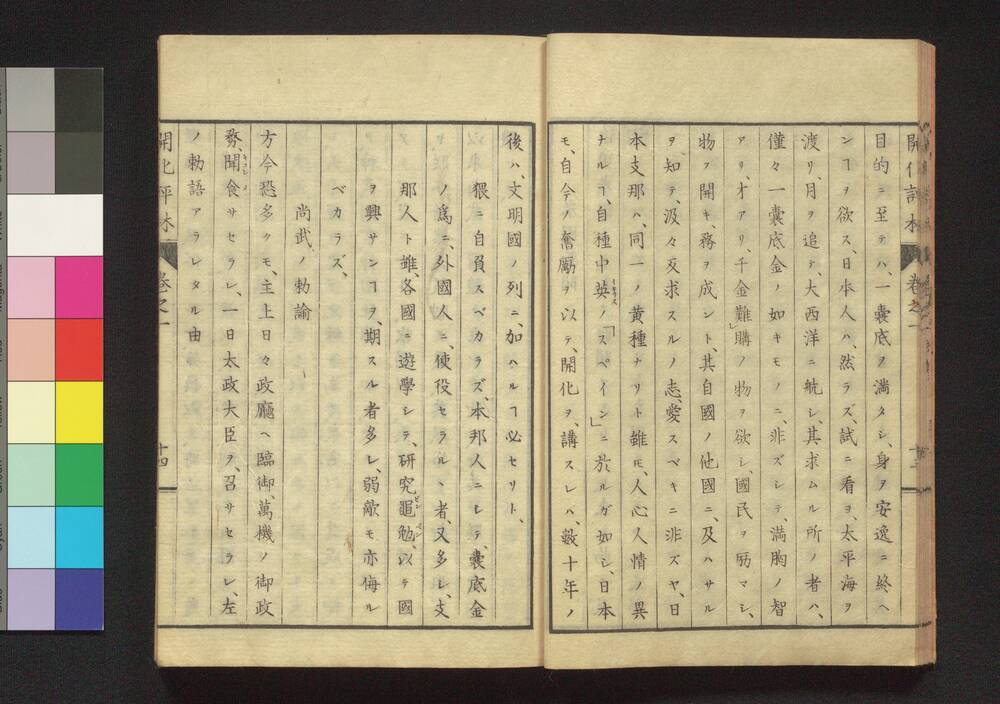 開化評林
卷之一
目的ニ至テハ、一囊底ヲ満タシ、身ヲ安逸ニ終ヘ
ンヿヲ欲ス、日本人ハ、然ラズ、試ニ看ヨ、太平海ヲ
渡リ、月ヲ追テ、大西洋ニ航シ、其求ムル所ノ者ハ、
僅々一囊底金ノ如キモノニ、非ズシテ、満胸ノ智
アリ、才アリ、千金難購ノ物ヲ欲シ、國民ヲ励マシ、
物ヲ開キ、務ヲ成ント、其自國ノ他國ニ、及ハサル
ヲ、知テ、汲々反求スルノ志、愛スベキニ非ズヤ、日
本支那ハ、同一ノ黄種ナリト雖モ、人心人情ノ異
ナルヿ、自種中英ノ「スペイン」ニ於ルガ如シ、日本
モ、自今ノ奮勵ヲ以テ、開化ヲ、講スレハ、數十年ノ
後ハ、文明國ノ列ニ、加ハルヿ必セリト、
猥ニ自負スベカラズ、本邦人ニシテ、囊底金
ノ爲ニ、外國人ニ、使役セラルヽ者、又多シ、支
那人ト雖、各國ニ遊學シテ、研究黽勉、以テ國
ヲ興サンヿヲ、期スル者多シ、弱敵モ亦侮ル
ベカラズ、
尚武ノ勅諭
方今恐多クモ、主上日々政廳ヘ臨御、萬機ノ御政
務、聞食サセラレ、一日太政大臣ヲ、召サセラレ、左
ノ勅語アラレタル由
開化評林
卷之一
十四